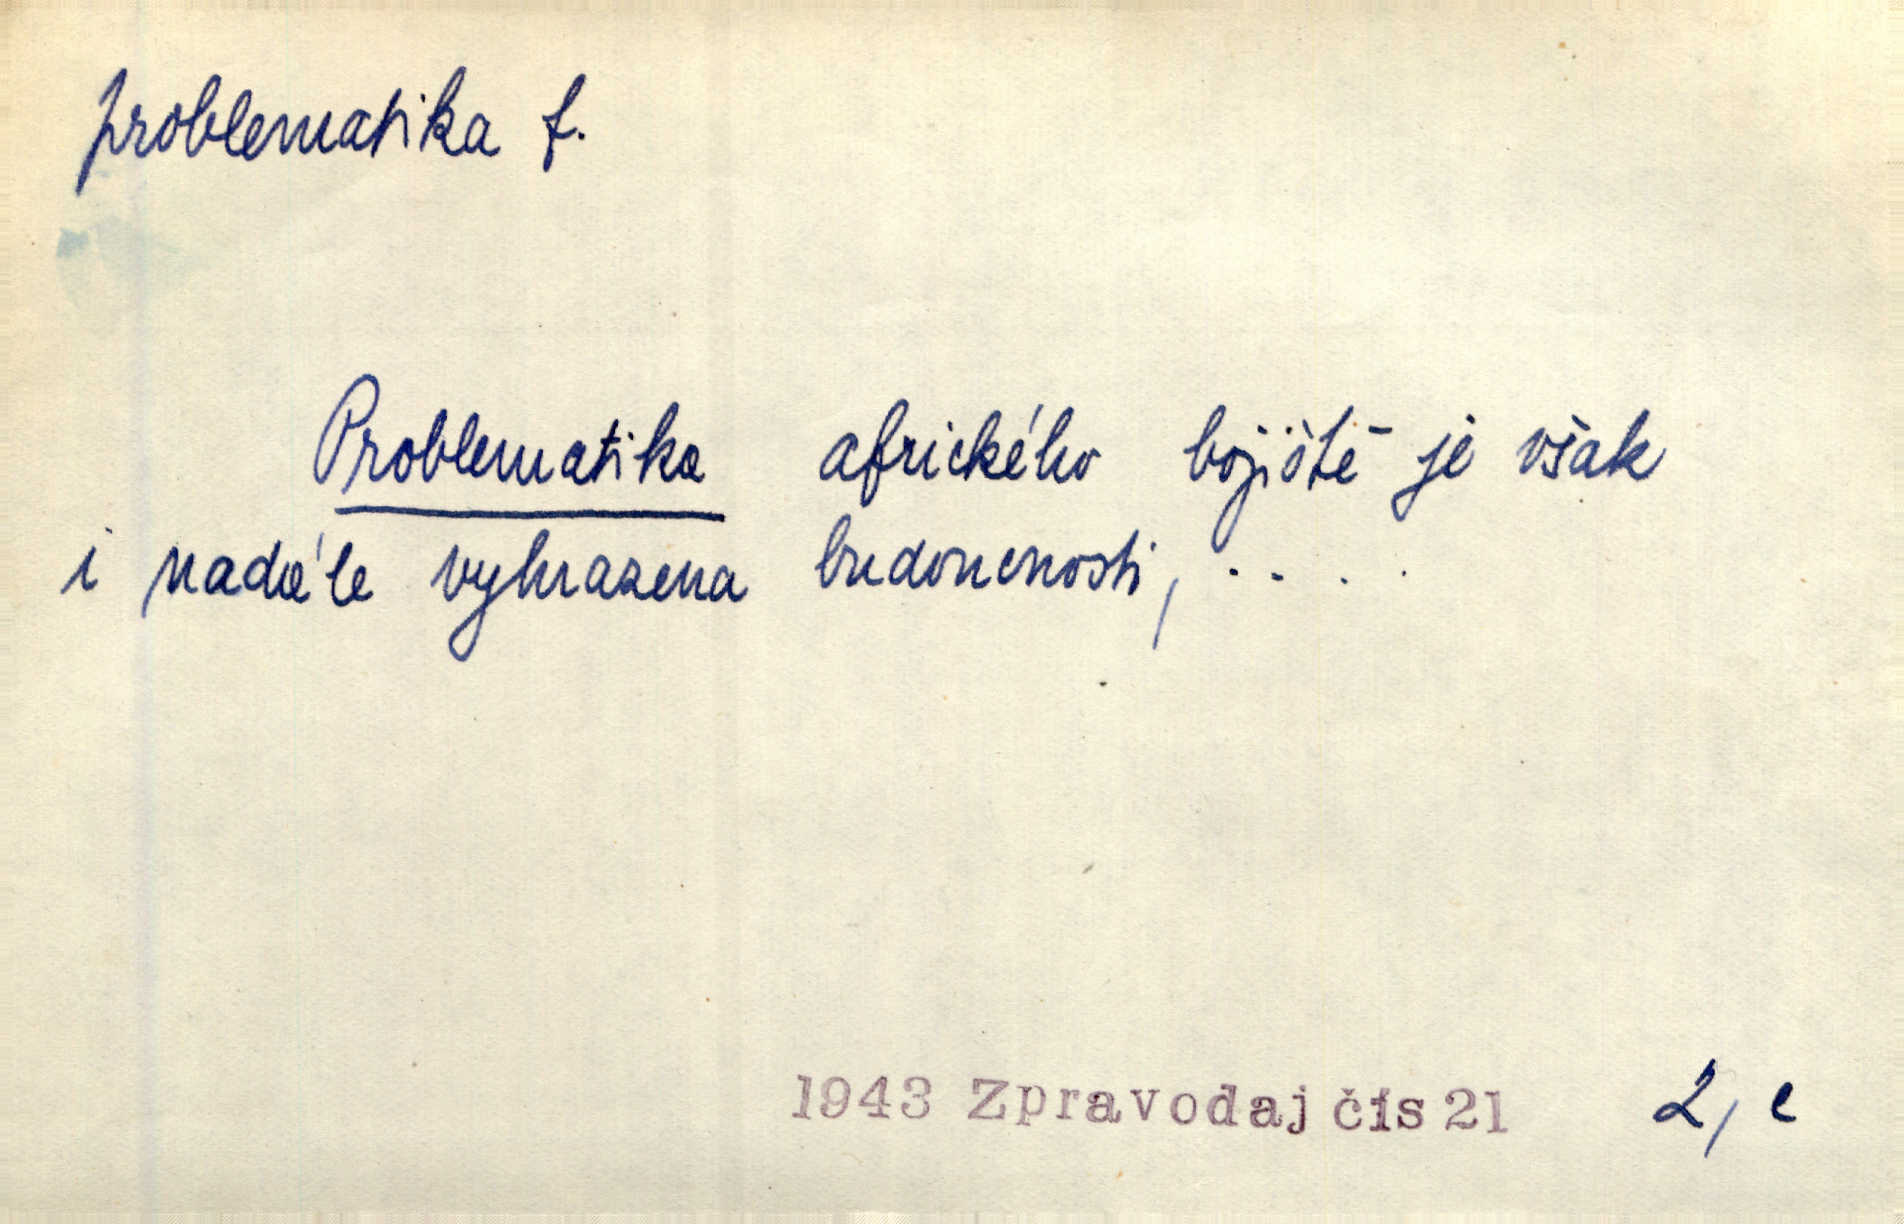 problematika f.
Problematika afrického bojiště je však
i nadále vyhrazena budoucnosti, . . . .
1943 Zpravodaj čís 21 2, c